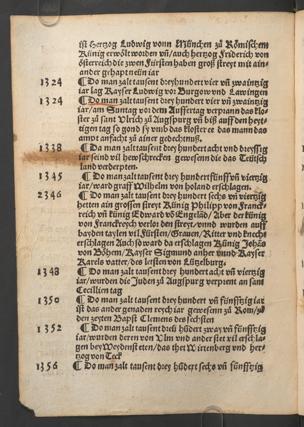 ist Hertzog Ludwig vonn München zů Römischem
Künig erwölt worden vñ/auch hertzog Friderich von
österreich die zwen Fürsten haben groß streyt mit ain-
ander gehapt neün iar
1324 ¶ Do man zalt tausent dreyhundert vier vñ zwaintzig
iar lag Kayser Ludwig vor Burgow vnd Lawingen
1324 ¶ Do man zalt tausent drey hundert vier vñ zwaintzig
iar/am Suntag vor dem Auffertag verprann das klo-
ster zů sant Ulrich zů Augspurg vñ biß auff den heyt-
tigen tag so gond sy vmb das kloster et das mann das
ampt anfacht zů ainer gedechtnuß.
1338 ¶ Da man zalt tausent drey hundert acht vnd dreyssig
iar seind vil hewschrecken gewesenn die das Teütsch
land verderpten.
1345 ¶ Do man zalt tausent dreyhundert fünff vñ viertzig
iar/ward graff Wilhelm von holand erschlagen.
2346 ¶ Do man zalt tausent drey hundert sechs vñ viertzig
hetten ain grossen streyt Künig Philipp von Franck-
reich vñ künig Edward võ Engeläd/Aber der künig
von Franckreych verlos den streyt/vnnd wurden auff
bayden taylen vil Fürsten/Grauen/Ritter vnd knecht
erschlagen Auch so ward da erschlagen Künig Johãs
von Böhem/Kayser Sigmund anher vnnd Kayser
Karels vatter/des letsten von Lützelburg.
1348 ¶ Do man zalt tausent drey hundert acht vñ viertzig
iar/wurden die Juden zů Augspurg verprent an sant
Cecilien tag
1350 ¶ Do man zalt tausent drey hundert vñ fünfftzig iar
ist das ander genaden reych iar gewesenn zů Rom/zů
den zeyten Bapst Clemens des sechsten
1352 ¶ Do man zalt tausent dreü hũdert zway vñ fünfftzig
iar/wurden deren von Ulm vnd ander stet vil erschla-
gen bey Weydenstetten/das thet Wirtenberg vnd her-
tzog von Teck
1356 ¶ Do man zalt tausent drey hũdert sechs vñ fünfftzig